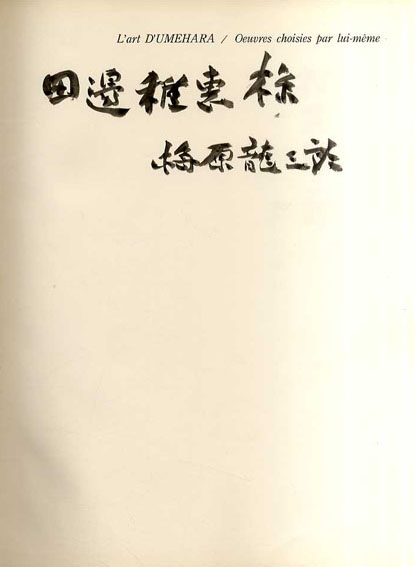 L'art D'UMEHARA / Oeuvres choisies par lui-même
田邊稚恵様
梅原龍三郎